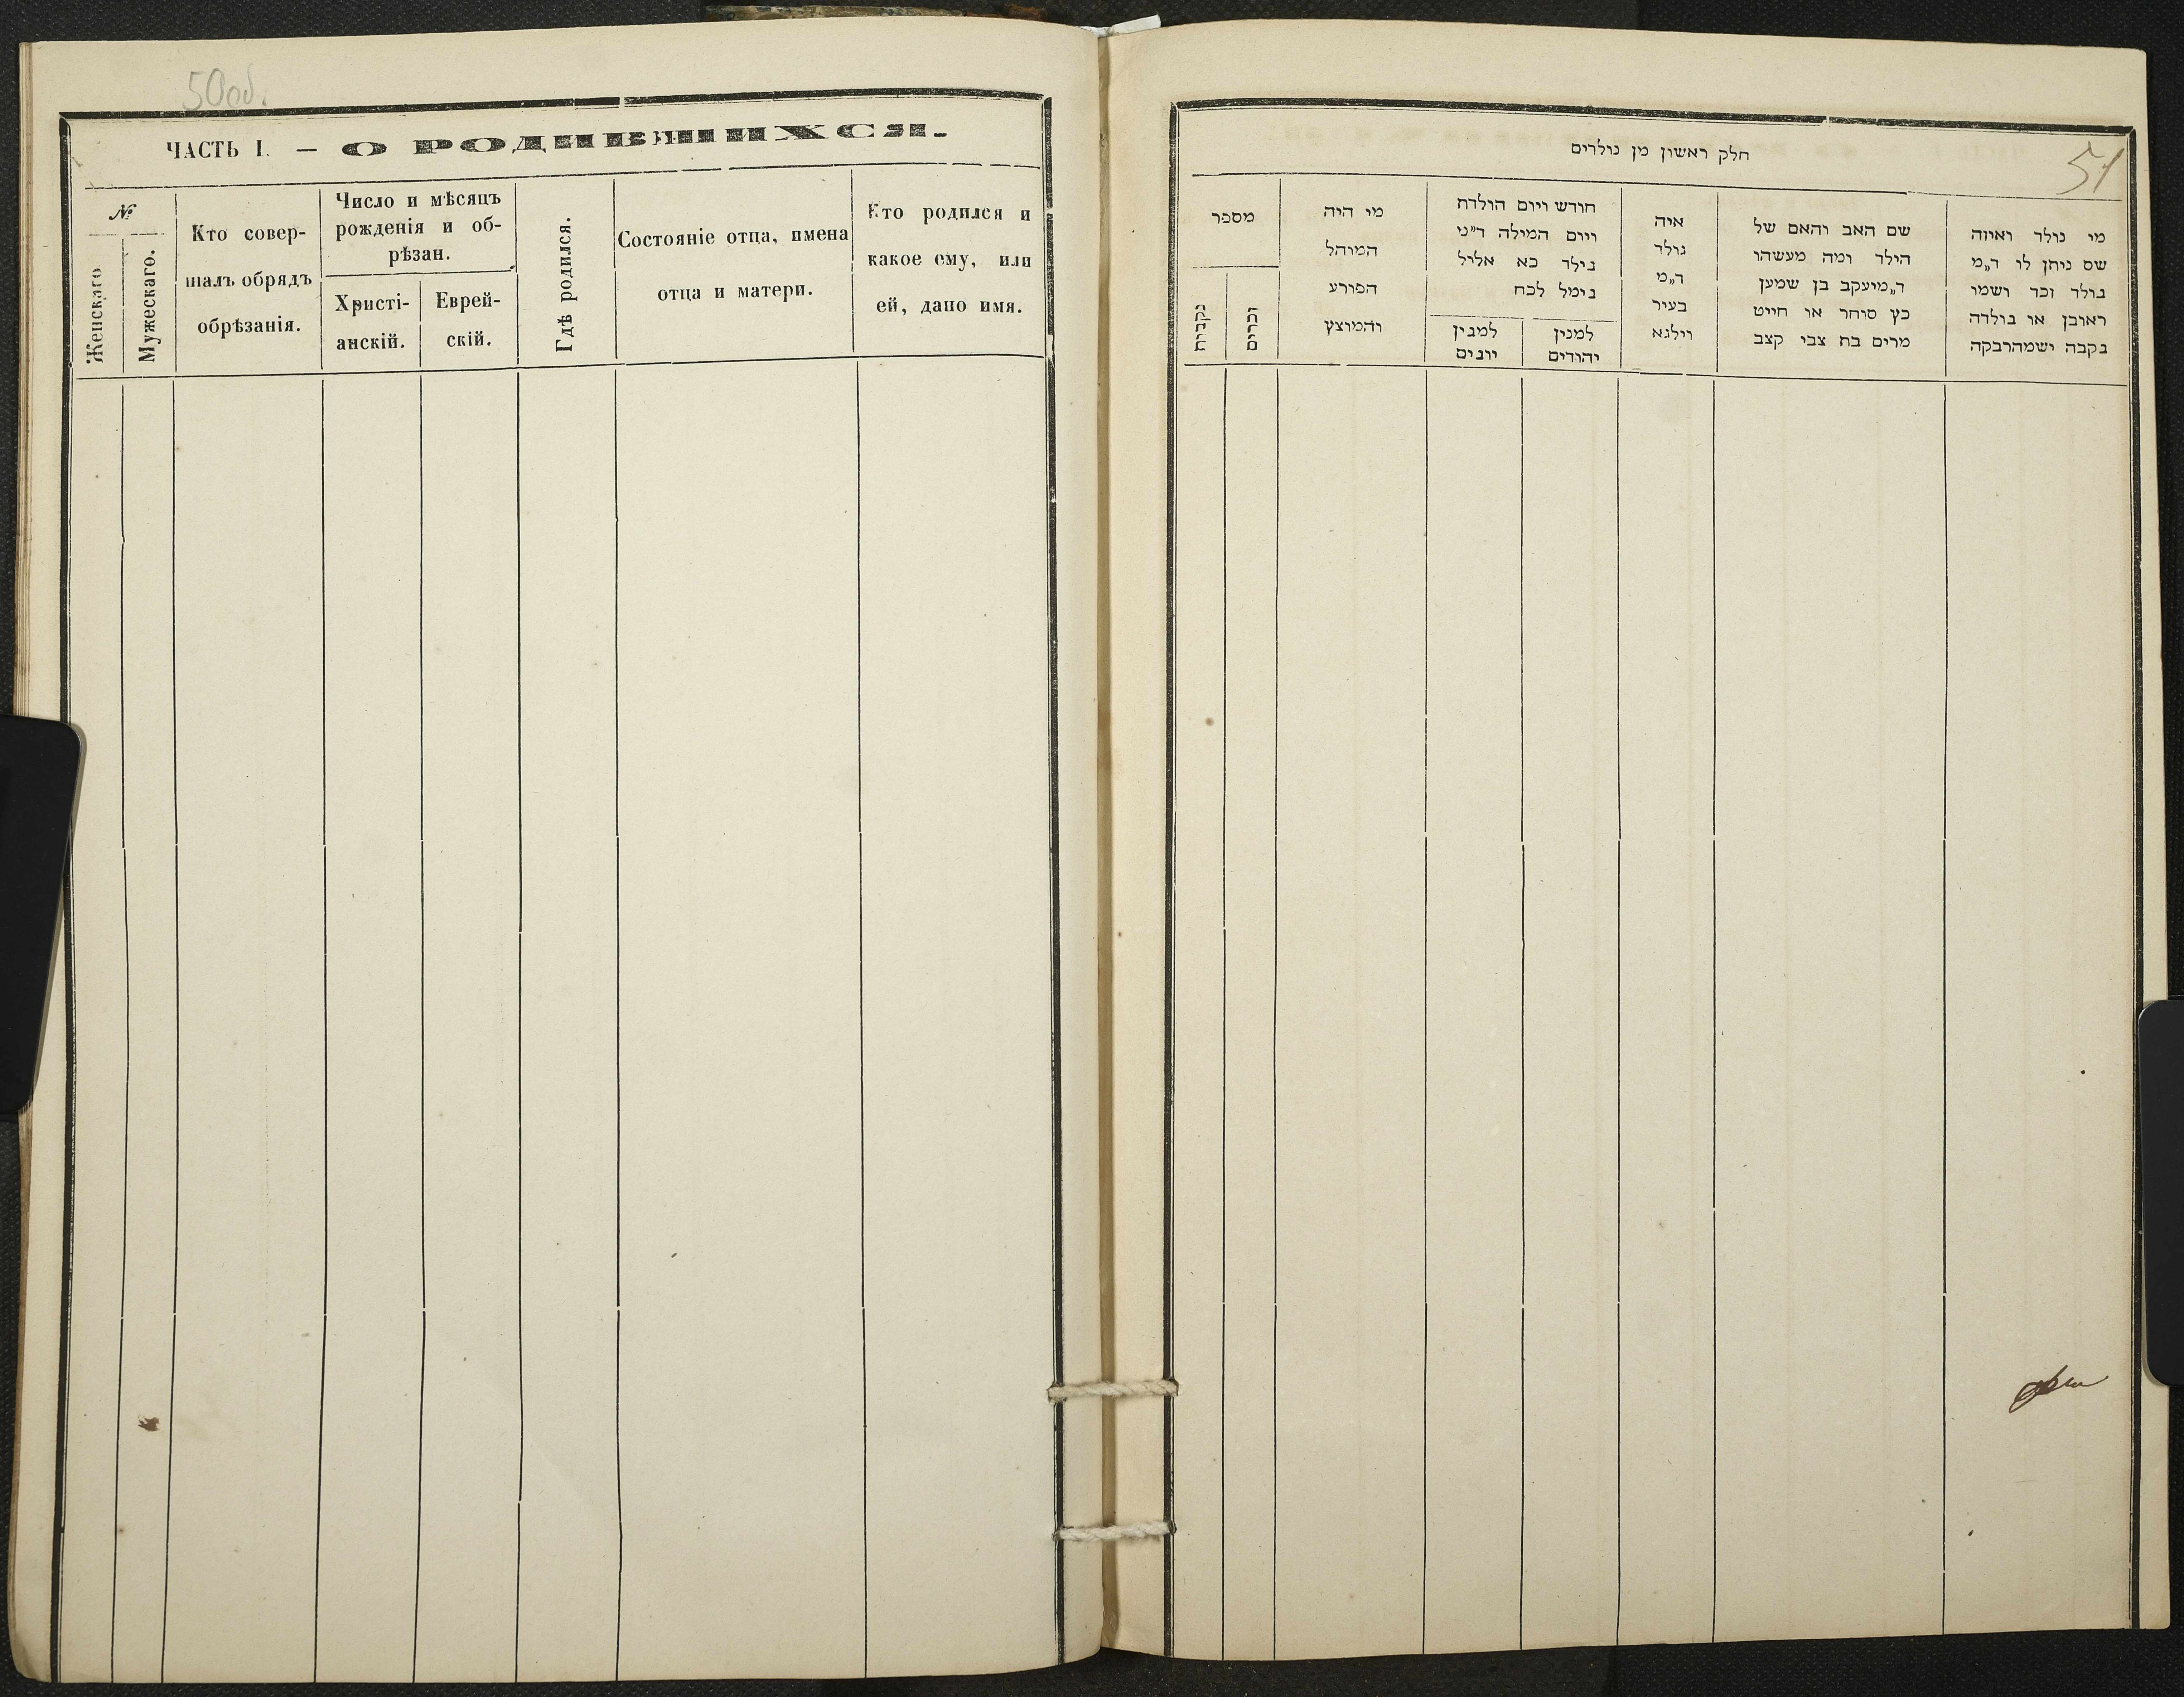 50об.
ЧАСТЬ I. — О РОДИВШИХСЯ.
№
Женскаго
Мужескаго.
Кто совер-
шалъ обрядъ
обрѣзанія.
Число и мѣсяцъ
рожденія и об-
рѣзан.
Христі-
анскій.
Еврей-
скій.
Гдѣ родился.
Состояніе отца, имена
отца и матери.
Кто родился и
какое ему, или
ей, дано имя.
51
חלק ראשון מן נולדים
מי נולד ואיזה
שם ניתן לו ד„מ
נולד זכר ושמו
ראובן או נולדה
נקבה ישמהרבקה
שם האב והאם של
הילד ומה מעשהו
ד„מיעקב בן שמעון
כץ סוחר או חייט
מרים בת צבי קצב
איה
נולד
ד„מ
בעיר
ווילנא
חודש ויום הולדת
ויום המילה ד״ני
נילד כא אליל
נימל לכח
למנין
יהודים
למנין
יונים
מי היה
המוהל
הפורע
והמוצץ
מספר
זכרים
נקבות